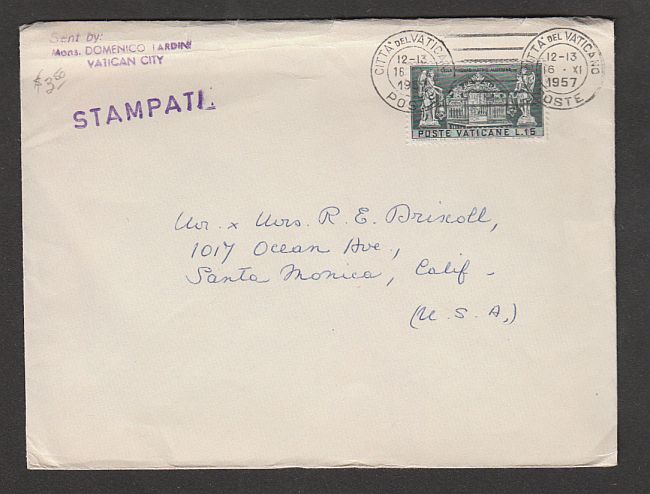 Sent by:
Mons. DOMENICO TARDINI
VATICAN CITY
$3.00
STAMPATI
CITTÀ DEL VATICANO
12-13
16
195
POSTE
CITTÀ DEL VATICANO
12-13
16 · XI
1957
POSTE
POSTE VATICANE L.15
Mr. x Mrs. R. E. Driscoll,
1017 Ocean Ave.,
Santa Monica, Calif -
(U.S.A,)